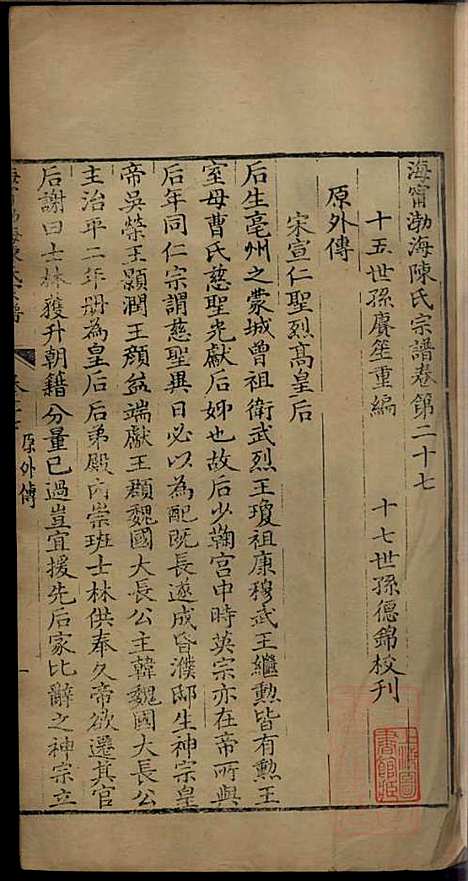 海甯渤海陳氏宗譜卷第二十七
十五世孫賡笙重編　十七世孫德錦校刊
原外傳
宋宣仁聖烈高皇后
后生亳州之蒙城曾祖衛武烈王瓊祖康穆武王繼勳皆有勲王
室母曹氏慈聖光獻后姊也故后少鞠宮中時英宗亦在帝所與
后年同仁宗謂慈聖異日必以為配既長遂成昏濮邸生神宗皇
帝吳榮王顥潤王顏益端獻王頵魏國大長公主韓魏國大長公
主治平二年册為皇后后弟殿內崇班士林供奉久帝欲遷其官
后謝曰士林獲升朝籍分量已過豈宜援先后家比辭之神宗立
原外傳
一